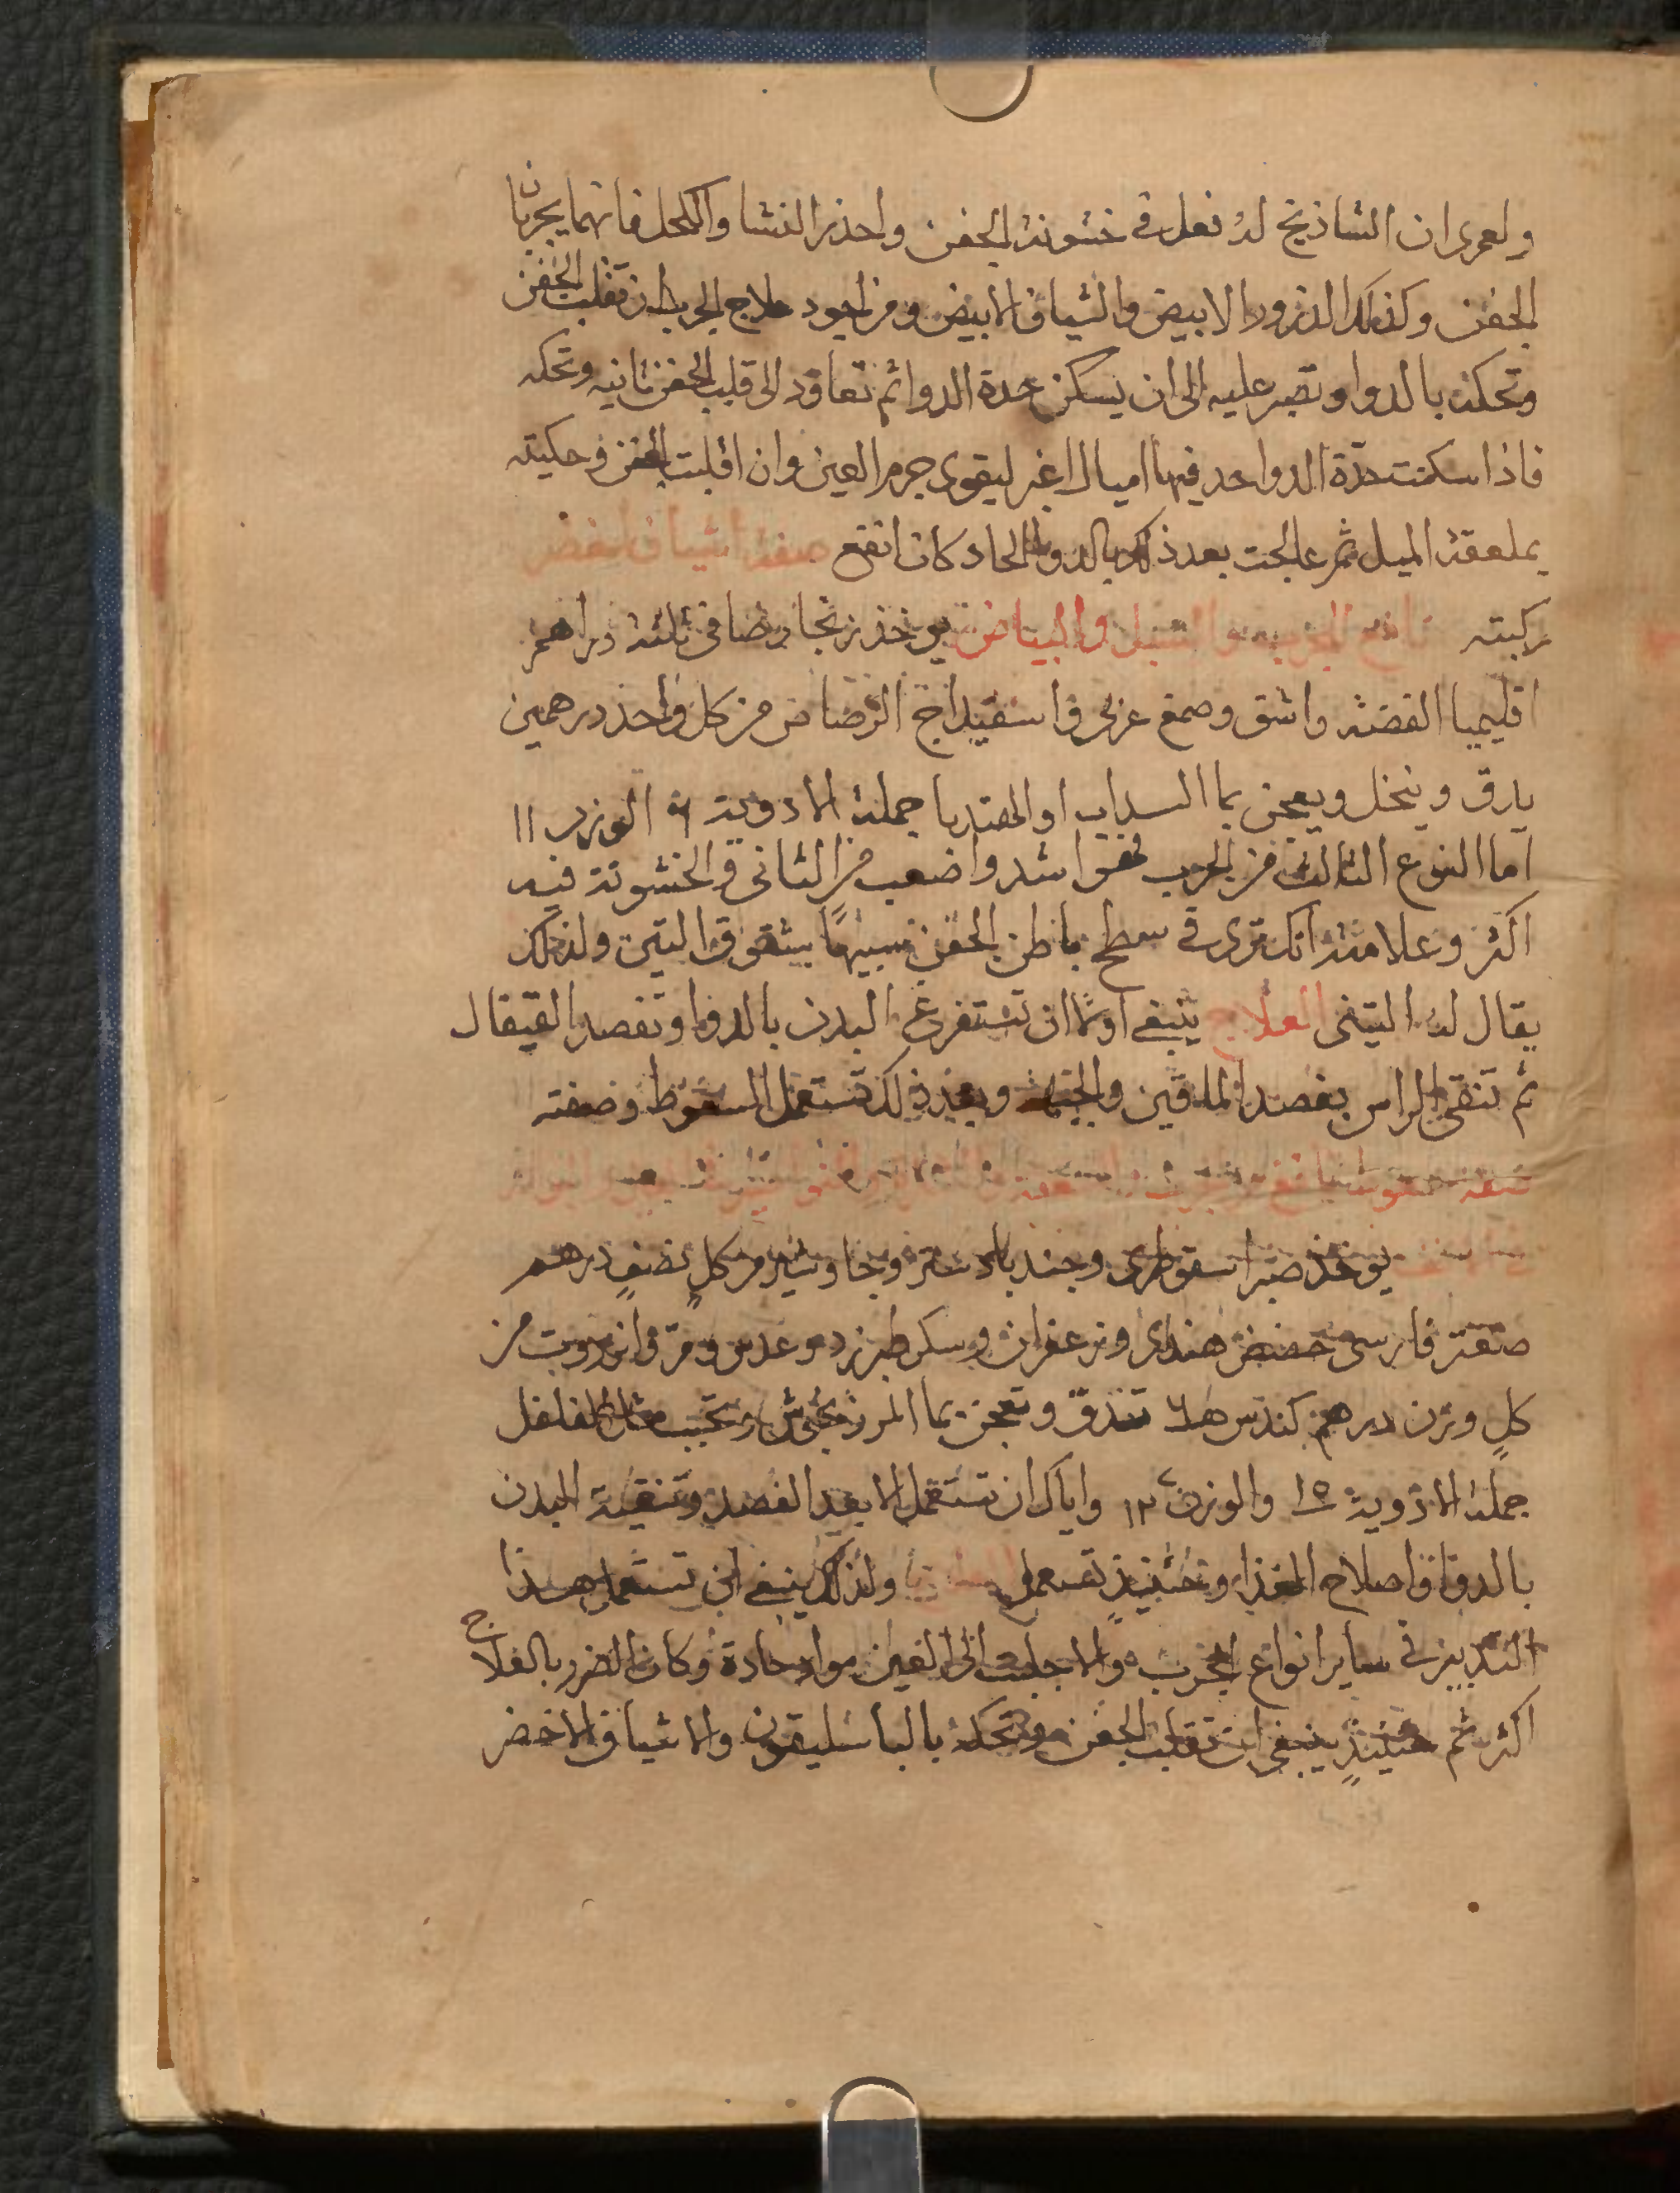 ولعمرى ان الشاذنج له فعل فى خشونة الجفن واحذر النشا والكحل فانهما يجربان
الجفن وكذلك الذرور الابيض والشياف الابيض ومن اجود علاج الجرب ان تقلب الجفن
وتحكه بالدوا وتصبر عليه الى ان يسكن حدة الدوا ثم تعاود الى قلب الجفن ثانيه وتحكه
فاذا سكنت حدة الدوا فيها اميال اغبر ليقوى جرم العين وان اقلبت الجفن وحكيته
بملعقة الميل ثم عالجت بعد ذلك بالدوا الحاد كان انفع صفة اشياف اخضر
ركبته نافع للجرب والسبل والبياض يوخذ زنجار صافى ثلثة دراهم
اقليميا الفضة واشق وصمغ عربى واسفيداج الرصاص من كل واحد درهمين
يدق وينخل ويعجن بما السداب او الهندبا جملة الادوية الوزن ١١
اما النوع الثالث من الجرب فهو اشد واصعب من الثانى والخشونة فيه
اكثر وعلامته انك ترى فى سطح باطن الجفن شبيها بشقوق التين ولذلك
يقال له التينى العلاج ينبغى اولا ان تستفرغ البدن بالدوا وتفصد القيفال
ثم تنقى الراس بفصد الماقين والجبهة وبعد ذلك تستعمل السعوط وصفته
صفة سعوط نافع
يوخذ صبر اسقوطرى وجندبادستر وجاوشير من كل نصف درهم
صعتر فارسى حضض هندى وزعفران وسكر طبرزد وعدس ومر وانزروت من
كل وزن درهم كندس تدق وتعجن بما المرزنجوش وتحبب مثال الفلفل
جملة الادوية والوزن ١٢ واياك ان تستعمل الا بعد الفصد وتنقية البدن
بالدوا واصلاح الغذا وحينيذ تستعمل ولذلك ينبغى ان تستعمل هذا
التدبير فى ساير انواع الجرب والا جلبت الى العين مواد حادة وكان الضرر بالعلاج
اكثر ثم حينيذ ينبغى ان تقلب الجفن وتحكه بالباسليقون والاشياف الاخضر